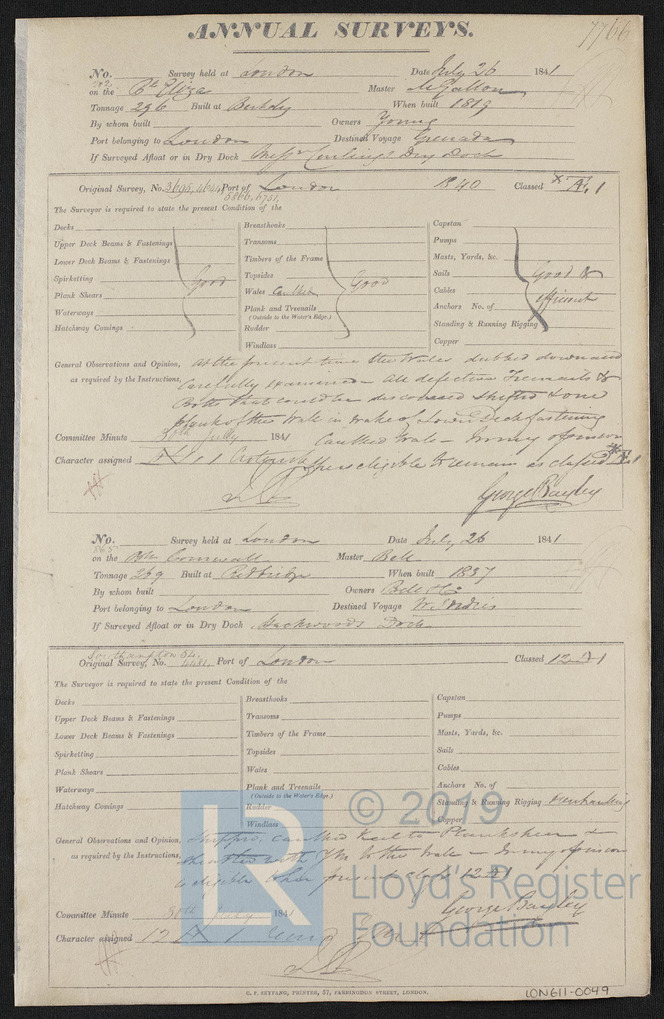 ANNUAL SURVEYS.
7766
No. Survey held at London Date July 26 1841
on the Eliza Master McGallon
Tonnage 296 Built at Berkeley When built 1819
By whom built Owners Young
Port belonging to London Destined Voyage Grenada
If Surveyed Afloat or in Dry Dock Messrs Curlings Dry Dock
Original Survey, No. 3695, 4644 Port of London 1840 Classed 1
5866, 6751
The Surveyor is required to state the present Condition of the
Decks Breasthooks Capstan
Upper Deck Beams & Fastenings Transoms Pumps
Lower Deck Beams & Fastenings Timbers of the Frame Masts, Yards, &c.
Spirketting Good Topsides Good Sails Good &
Plank Shears Wales Caulked Cables efficient
Waterways Plank and Treenails Anchors No. of
(Outside to the Water's Edge.)
Hatchway Comings Rudder Standing & Running Rigging
Windlass Copper
General Observations and Opinion, At the present time the Wales dubbed down and
as required by the Instructions, Carefully examined - All defective Treenails &
Bolts that could be discovered Shifted & one
plank of the Wale in wake of Lower Deck fastening
Committee Minute 30th July 1841 Caulked Wale - In my opinion
Character assigned 1 eligible to remain as classed 1
George Bayley
No. Survey held at London Date July 26 1841
on the Cornwall Master Bell
Tonnage 269 Built at Redbridge When built 1837
By whom built Owners Bell & Co
Port belonging to London Destined Voyage W. Indies
If Surveyed Afloat or in Dry Dock Hackwoods Dock
Southampton 54
Original Survey, No. 4481 Port of London Classed 12 A 1
The Surveyor is required to state the present Condition of the
Decks Breasthooks Capstan
Upper Deck Beams & Fastenings Transoms Pumps
Lower Deck Beams & Fastenings Timbers of the Frame Masts, Yards, &c.
Spirketting Topsides Sails
Plank Shears Wales Cables
Waterways Plank and Treenails Anchors No. of
(Outside to the Water's Edge.)
Hatchway Comings Rudder Standing & Running Rigging overhauling
Windlass Copper
General Observations and Opinion, Stripped, caulked Keel to Planksheer &
as required by the Instructions, sheathed with YM to the Wale - In my opinion
is eligible to her present class 12 A 1
Committee Minute 30th July 1841 George Bayley
Character assigned 12 A 1
LR
© 2019
Lloyd's Register
Foundation
C. F. SEYFANG, PRINTER, 57, FARRINGDON STREET, LONDON.
LON611-0049